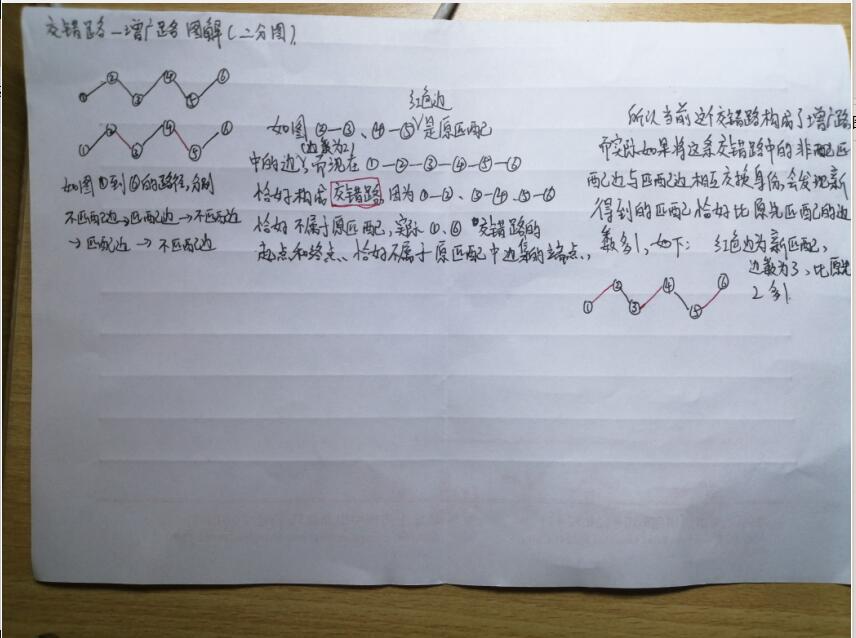 交错路—增广路图解(二分图).
① ② ③ ④ ⑤ ⑥
① ② ③ ④ ⑤ ⑥
如图①到⑥的路径,分别
不匹配边→匹配边→不匹配边
→匹配边→不匹配边
红色边
如图②—③、④—⑤是原匹配
(边数为2)
中的边,而现在①—②—③—④—⑤—⑥
恰好构成交错路,因为①—②、③—④、⑤—⑥
恰好不属于原匹配,实际①、⑥ 交错路的
起点和终点、恰好不属于原匹配中边集的端点、,
所以当前这个交错路构成了增广路
而实际如果将这条交错路中的非匹配
匹配边与匹配边相互交换身份,会发现新
得到的匹配恰好比原先匹配的边
数多1,如下: 红色边为新匹配,
边数为3,比原先
2多1
① ② ③ ④ ⑤ ⑥